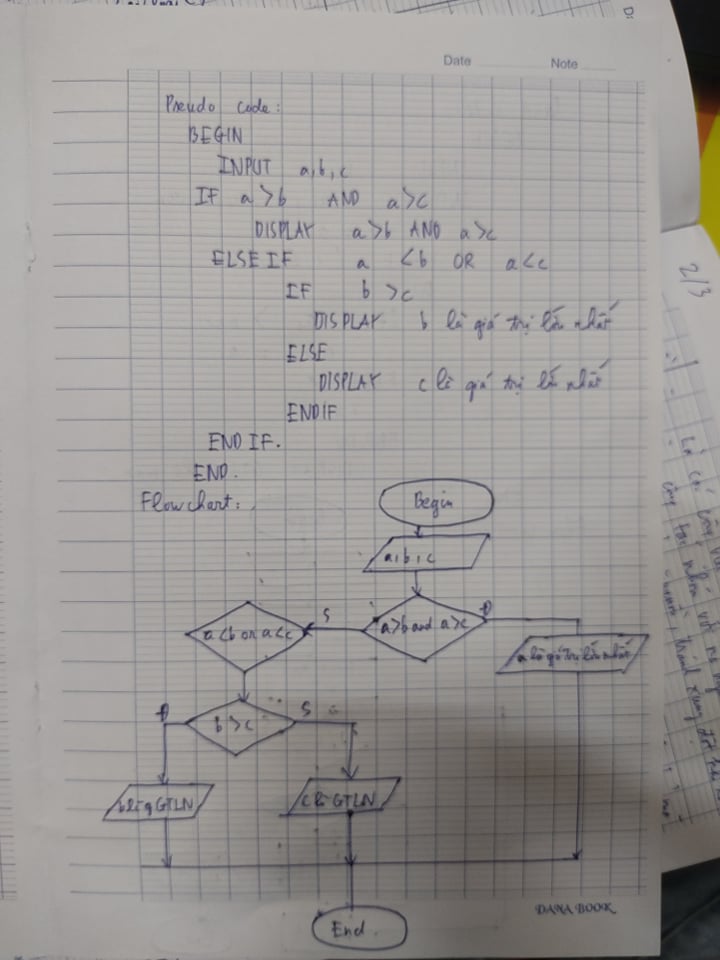 Date Note
Pseudo code:
BEGIN
INPUT a,b,c
IF a>b AND a>c
DISPLAY a>b AND a>c
ELSE IF a <b OR a<c
IF b >c
DISPLAY b là giá trị lớn nhất
ELSE
DISPLAY c là giá trị lớn nhất
ENDIF
END IF.
END.
Flowchart:
Begin
a,b,c
a<b or a<c
S
a>b and a>c
Đ
a là giá trị lớn nhất
Đ
b >c
S
b là GTLN
c là GTLN
End.
DANA BOOK
2/3